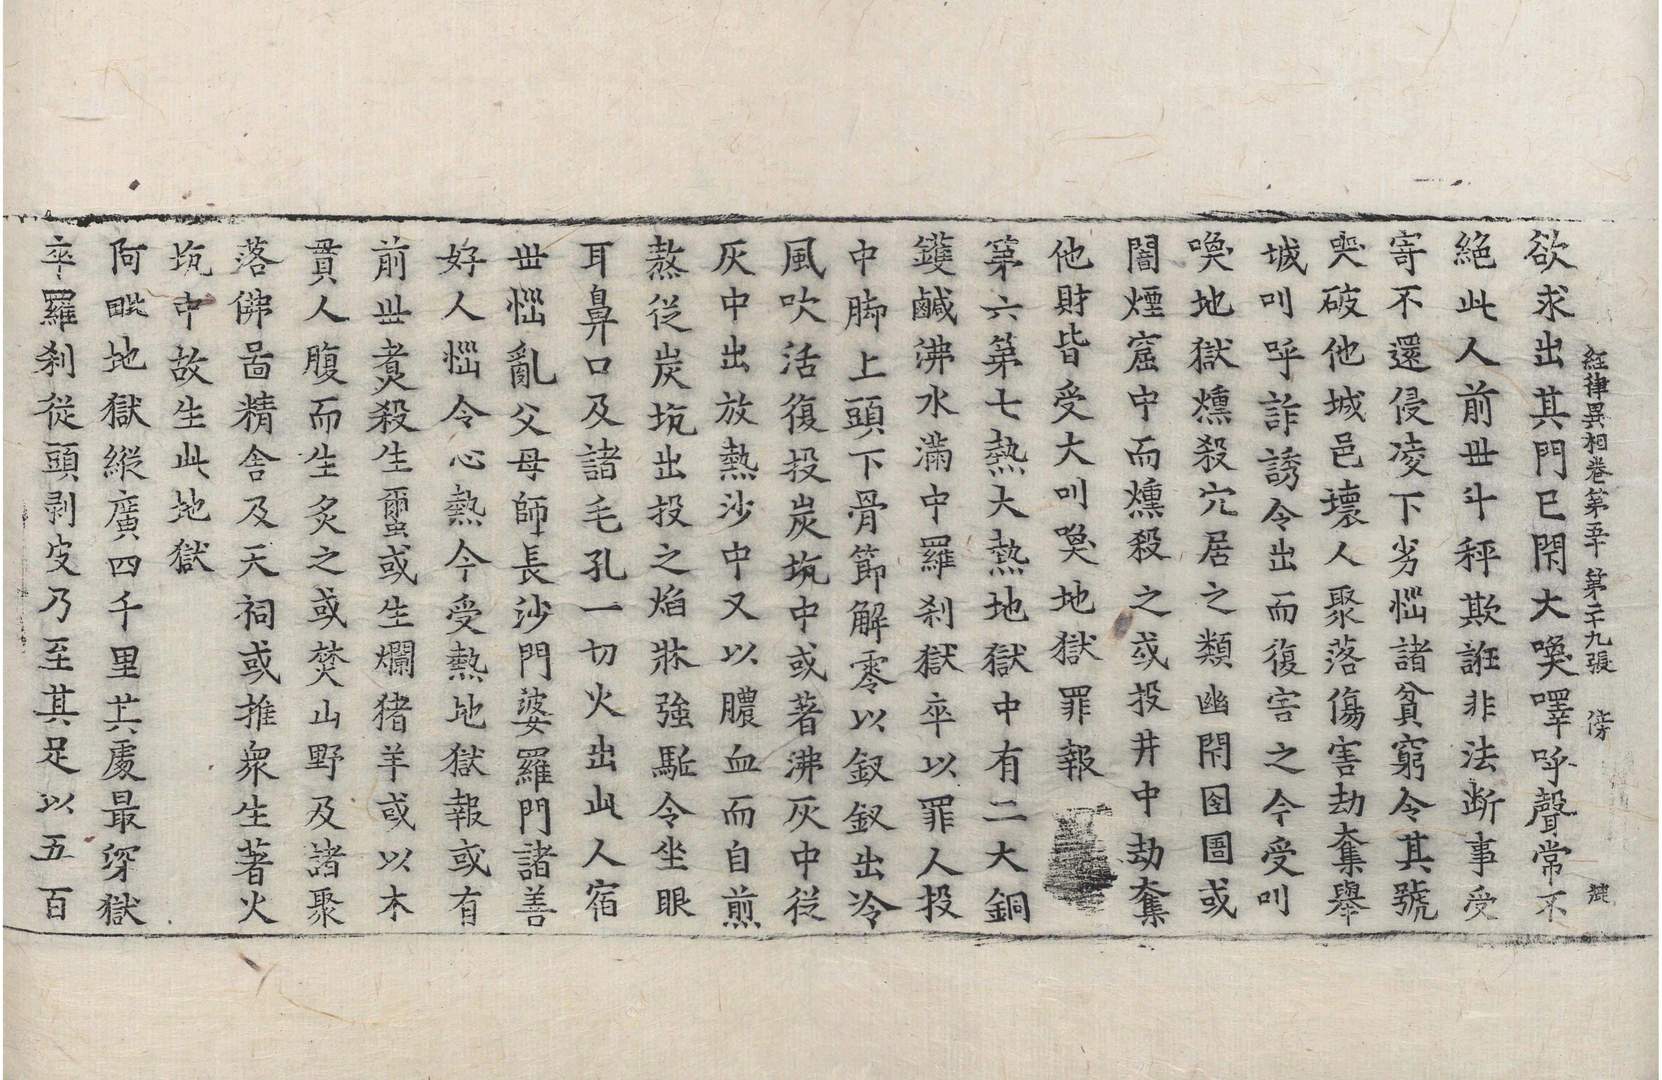 經律異相卷第五十 第二十九張 傍
欲求出其門已閉大喚嘷呼聲常不
絕此人前世斗秤欺誑非法断事受
寄不還侵凌下劣惱諸貧窮令其號
哭破他城邑壞人聚落傷害劫奪舉
城叫呼詐誘令出而復害之今受叫
喚地獄燻殺穴居之類幽閉囹圄或
闇煙窟中而燻殺之或投井中劫奪
他財皆受大叫喚地獄罪報
第六第七熱大熱地獄中有二大銅
鑊鹹沸水滿中羅剎獄卒以罪人投
中脚上頭下骨節解零以釵釵出冷
風吹活復投炭坑中或著沸灰中從
灰中出放熱沙中又以膿血而自煎
熬從炭坑出投之焰牀強駈令坐眼
耳鼻口及諸毛孔一切火出此人宿
世惱亂父母師長沙門婆羅門諸善
好人惱令心熱今受熱地獄報或有
前世煮殺生蠒或生爛猪羊或以木
貫人腹而生炙之或焚山野及諸聚
落佛啚精舍及天祠或推衆生著火
坑中故生此地獄
阿毗地獄縱廣四千里其處最深獄
卒羅剎從頭剥皮乃至其足以五百